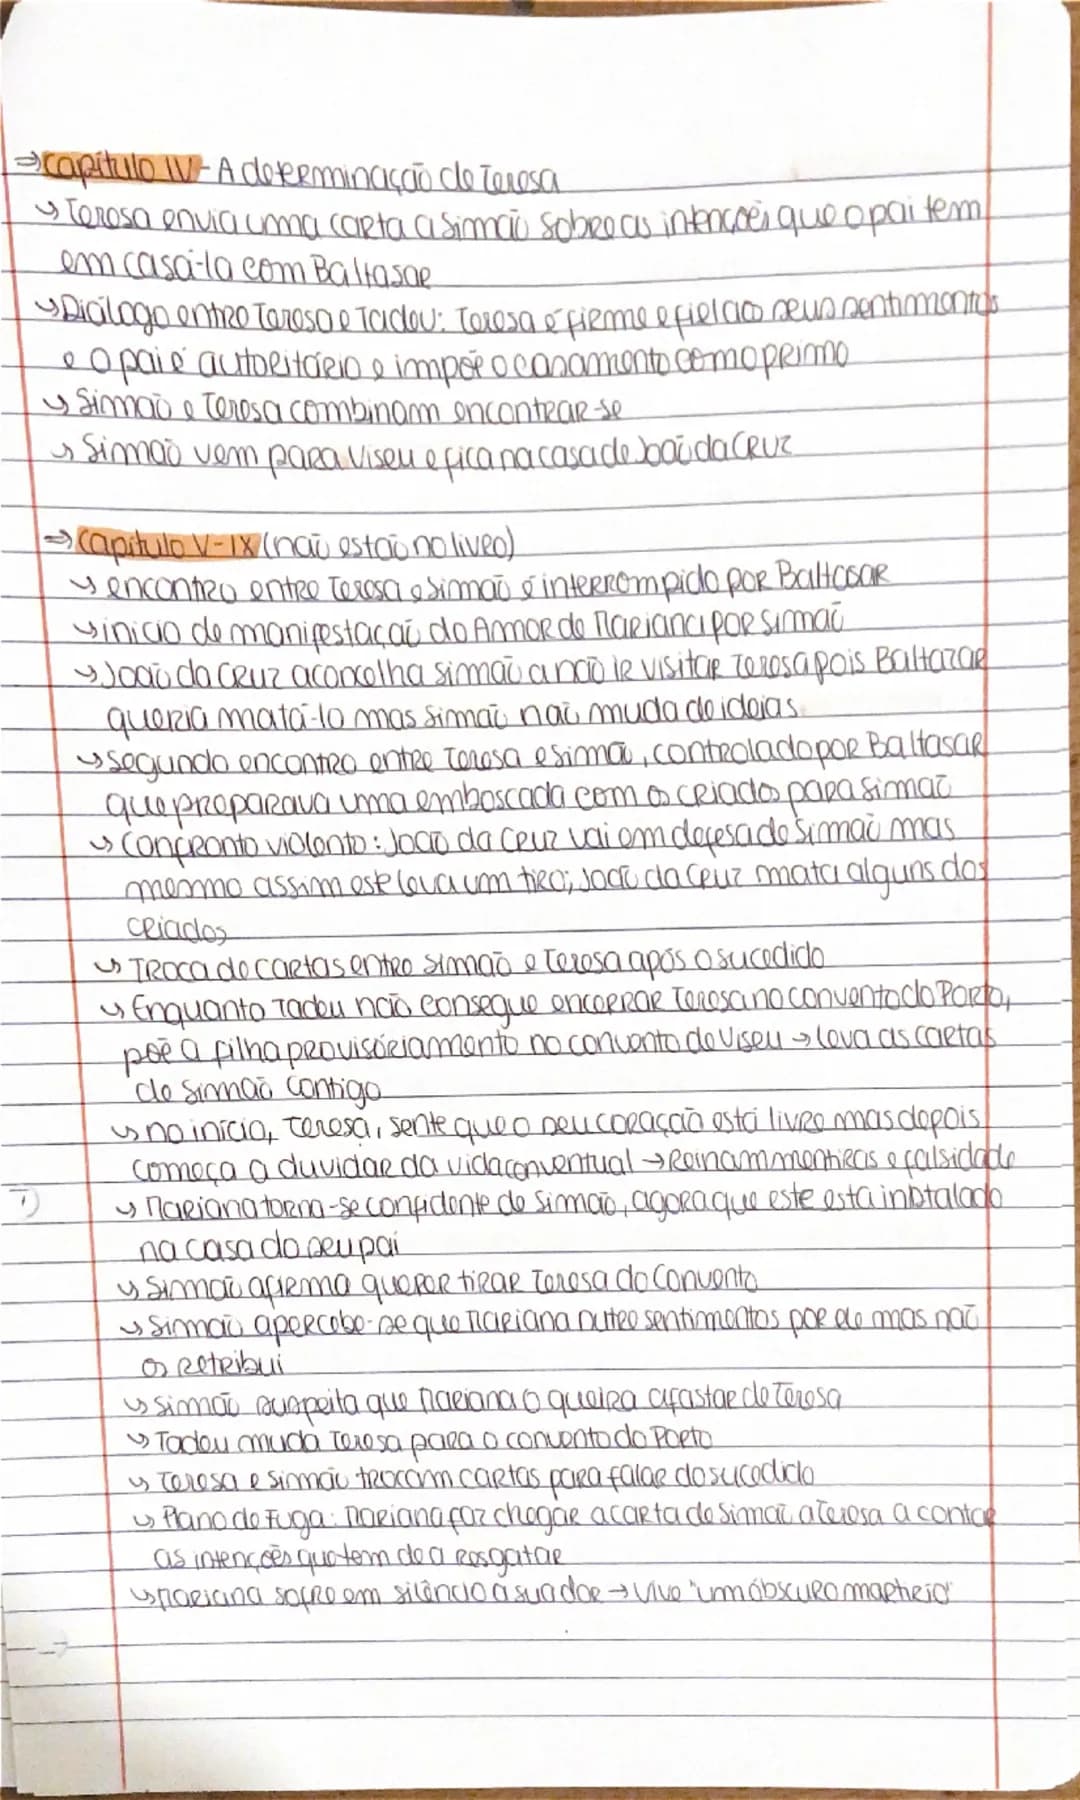 ⇒ capítulo IV - A determinação de Teresa
↳ Teresa envia uma carta a Simão sobre as intenções que o pai tem
em casá-la com Baltasar
↳ Diálogo entre Teresa e Tadeu: Teresa é firme e fiel ao seus sentimentos
e o pai é autoritário e impõe o casamento com o primo
↳ Simão e Teresa combinam encontrar-se
↳ Simão vem para Viseu e fica na casa de João da Cruz
⇒ capítulo V-IX (não estão no livro)
↳ encontro entre Teresa e Simão é interrompido por Baltasar
↳ início de manifestação do Amor de Mariana por Simão
↳ João da Cruz aconcelha Simão a não ir visitar Teresa pois Baltazar
queria matá-lo mas Simão não muda de ideias
↳ segundo encontro entre Teresa e Simão, controlado por Baltasar
que preparava uma emboscada com os criados para Simão
↳ Confronto violento: João da Cruz vai em defesa de Simão mas
mesmo assim este leva um tiro; João da Cruz mata alguns dos
criados
↳ Troca de cartas entre Simão e Teresa após o sucedido
↳ Enquanto Tadeu não consegue encerrar Teresa no convento do Porto,
põe a filha provisóriamente no convento de Viseu → leva as cartas
de Simão contigo
↳ no início, Teresa, sente que o seu coração está livre mas depois
começa a duvidar da vida conventual → Reinam mentiras e falsidade
↳ Mariana torna-se confidente de Simão, agora que este está instalado
na casa do seu pai
↳ Simão afirma querer tirar Teresa do Convento
↳ Simão apercebe-se que Mariana nutre sentimentos por ele mas não
os retribui
↳ Simão suspeita que Mariana o queira afastar de Teresa
↳ Tadeu muda Teresa para o convento do Porto
↳ Teresa e Simão trocam cartas para falar do sucedido
↳ Plano de Fuga: Mariana faz chegar a carta de Simão a Teresa a contar
as intenções que tem de a resgatar
↳ Mariana sofre em silêncio a sua dor → Vive "um obscuro martírio"